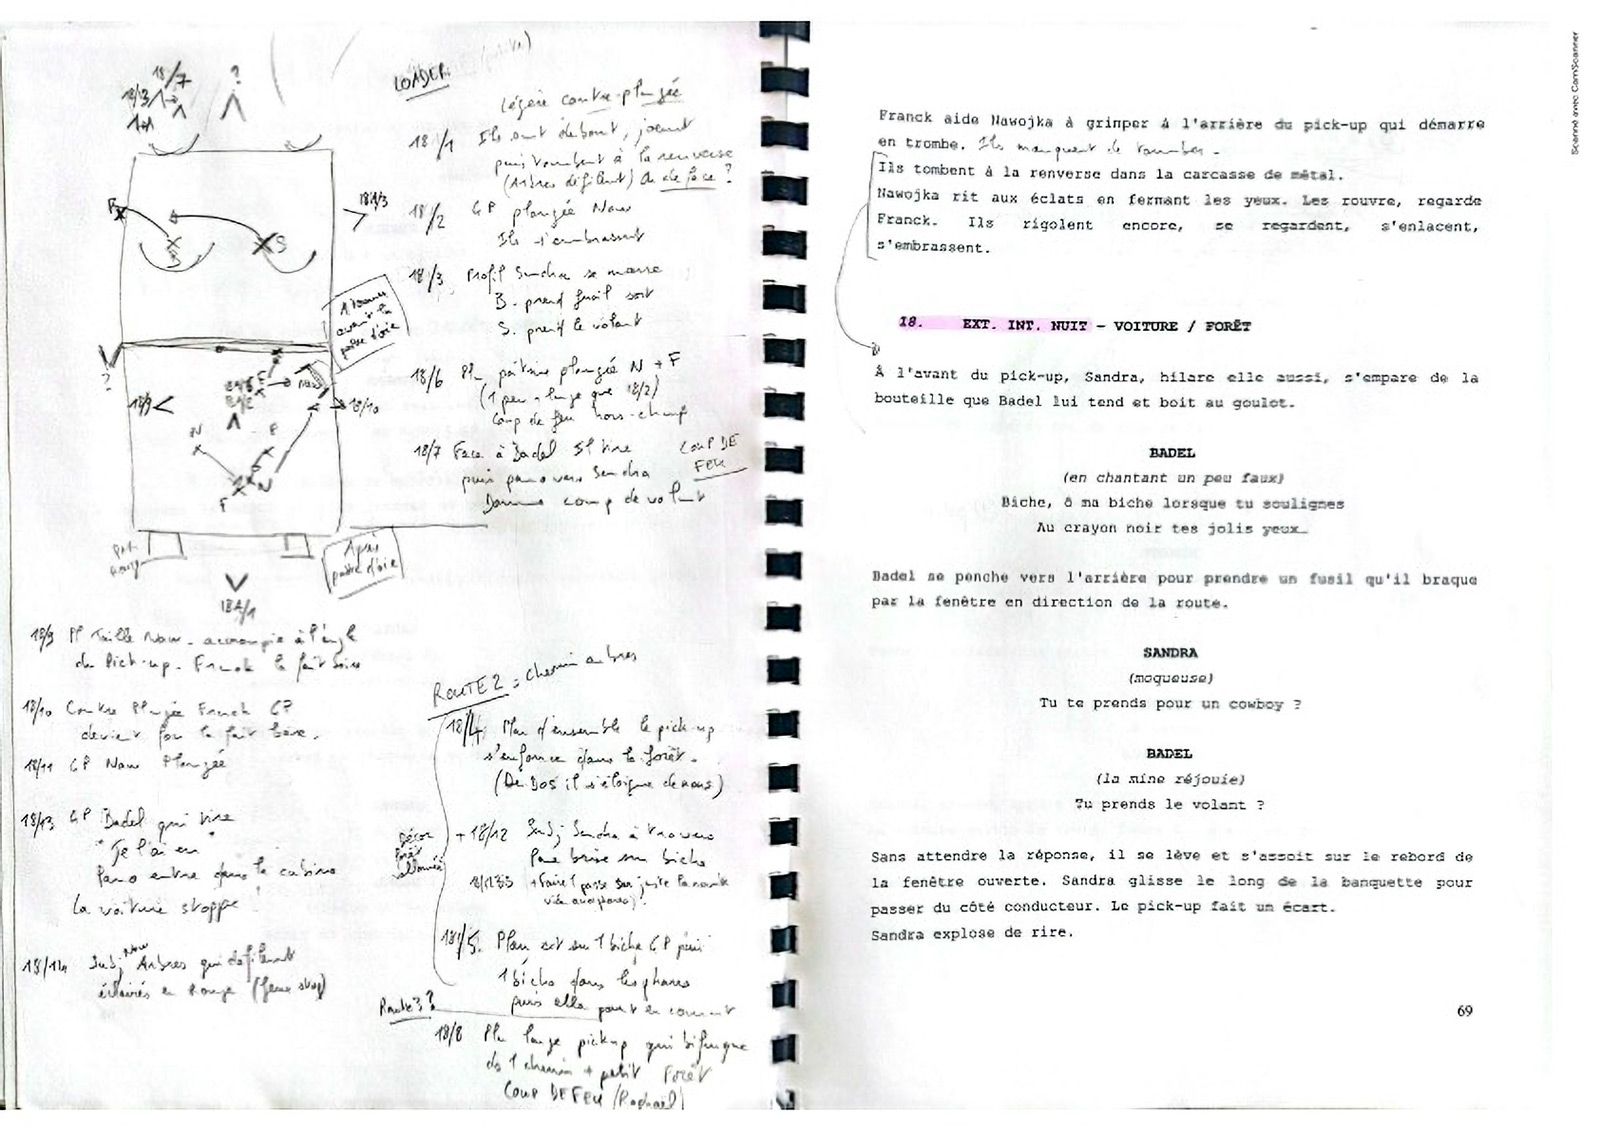 18/7
18/3
?
LOADER
Légère contre-plongée
18/1 Ils sont debout, jouent
puis tombent à la renverse
(Arbres défilent) Ou de face ?
18/2 GP plongée Naw
Ils s'embrassent
18/3
18/3 Profil Sandra se marre
B. prend fusil sort
S. prend le volant
S
?
18/9
18/10
N
F
F
N
18/6 Pl poitrine plongée N + F
(1 peu + large que 18/2)
Coup de feu hors-champ
18/7 Face à Badel
puis pano vers Sandra
Donne coup de volant
COUP DE
FEU
Après
patte d'oie
18A/1
18/9 Pl Taille Naw - accroupie à l'angle
du Pick-up - Franck la fait boire
18/10 Contre Plongée Franck GP
devient fou la fait boire.
18/11 GP Naw Plongée
18/13 GP Badel qui tire
"Je l'ai eu"
Pano entre dans la cabine
La voiture stoppe
18/14 Subj Naw Arbres qui défilent
éclairés en Rouge (feux stop)
ROUTE 2 = chemin arbres
18/4 Plan d'ensemble le pick-up
s'enfonce dans la forêt.
(De Dos il s'éloigne de nous)
Décor
forêt
+ 18/12 Subj Sandra à travers
Pare brise sur biche
18/5. Plan sur 1 biche GP puis
1 biche dans les phares
puis elle part en courant
Route 3 ?
18/8 Pl large pick-up qui bifurque
ds 1 chemin + petit Forêt
COUP DE FEU (Raphaël)
Franck aide Nawojka à grimper à l'arrière du pick-up qui démarre
en trombe. Ils manquent de tomber.
Ils tombent à la renverse dans la carcasse de métal.
Nawojka rit aux éclats en fermant les yeux. Les rouvre, regarde
Franck. Ils rigolent encore, se regardent, s'enlacent,
s'embrassent.
18. EXT. INT. NUIT – VOITURE / FORÊT
À l'avant du pick-up, Sandra, hilare elle aussi, s'empare de la
bouteille que Badel lui tend et boit au goulot.
BADEL
(en chantant un peu faux)
Biche, ô ma biche lorsque tu soulignes
Au crayon noir tes jolis yeux…
Badel se penche vers l'arrière pour prendre un fusil qu'il braque
par la fenêtre en direction de la route.
SANDRA
(moqueuse)
Tu te prends pour un cowboy ?
BADEL
(la mine réjouie)
Tu prends le volant ?
Sans attendre la réponse, il se lève et s'assoit sur le rebord de
la fenêtre ouverte. Sandra glisse le long de la banquette pour
passer du côté conducteur. Le pick-up fait un écart.
Sandra explose de rire.
69
Scanné avec CamScanner